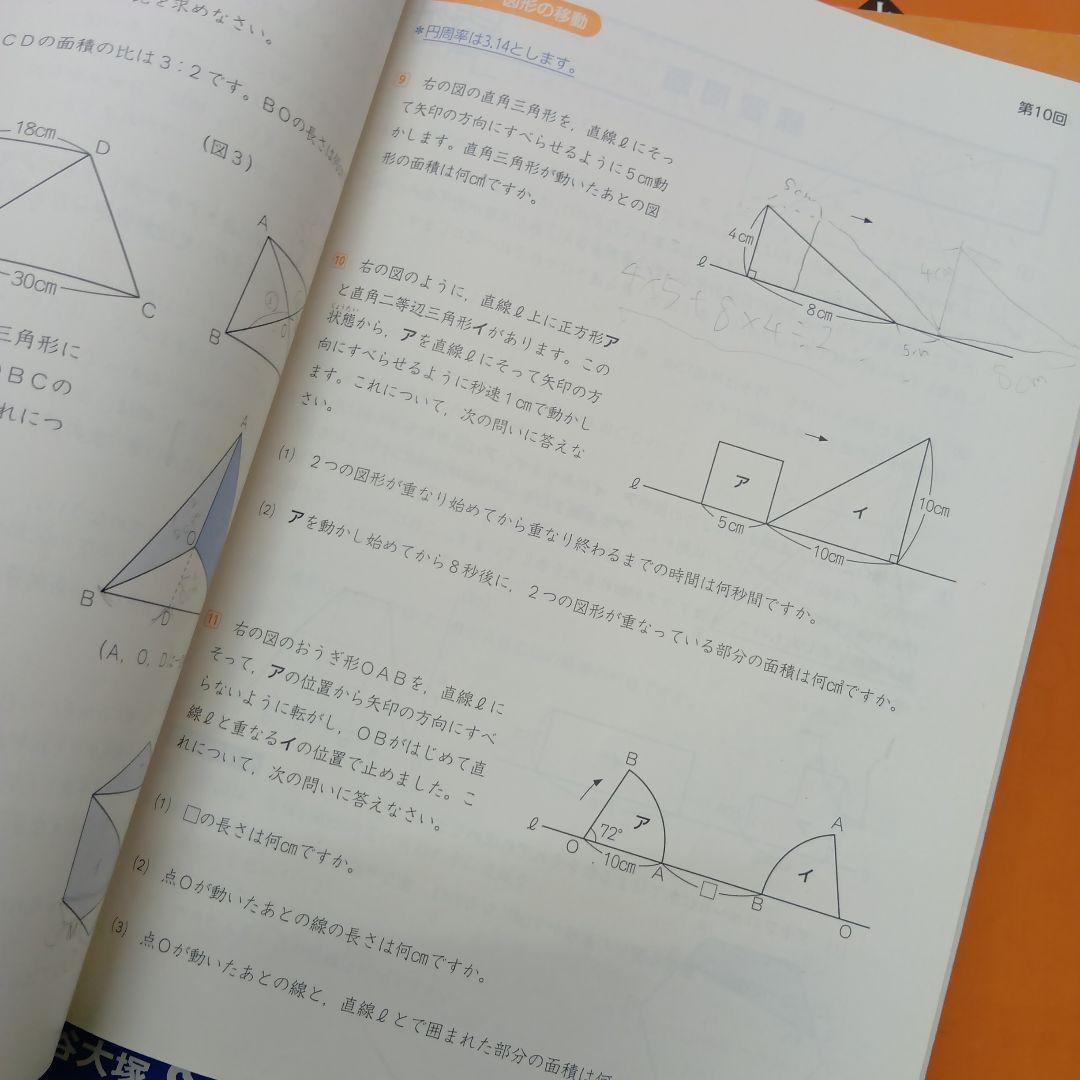 を求めなさい。
CDの面積の比は3:2です。BOの長さは
18cm
D
(図3)
A
30cm
C
B
三角形に
OBCの
れにつ
A
O
B
D
(A, O, D
図形の移動
*円周率は3.14とします。
第10回
9 右の図の直角三角形を，直線ℓにそっ
て矢印の方向にすべらせるように5cm動
かします。直角三角形が動いたあとの図
形の面積は何cm²ですか。
5cm
4cm
ℓ
8cm
4cm
5cm
8cm
4×5+8×4÷2
10 右の図のように，直線ℓ上に正方形ア
と直角二等辺三角形イがあります。この
状態から，アを直線ℓにそって矢印の方
じょうたい
向にすべらせるように秒速1cmで動かし
ます。これについて，次の問いに答えな
さい。
(1) 2つの図形が重なり始めてから重なり終わるまでの時間は何秒間ですか。
(2) アを動かし始めてから8秒後に，2つの図形が重なっている部分の面積は何cm²ですか。
ℓ
ア
イ
5cm
10cm
10cm
11 右の図のおうぎ形OABを，直線ℓに
そって，アの位置から矢印の方向にすべ
らないように転がし，OBがはじめて直
線ℓと重なるイの位置で止めました。こ
れについて，次の問いに答えなさい。
(1) □の長さは何cmですか。
(2) 点Oが動いたあとの線の長さは何cmですか。
(3) 点Oが動いたあとの線と，直線ℓとで囲まれた部分の面積は何
B
ℓ
72°
ア
O
10cm
A
□
B
A
イ
O
谷大塚